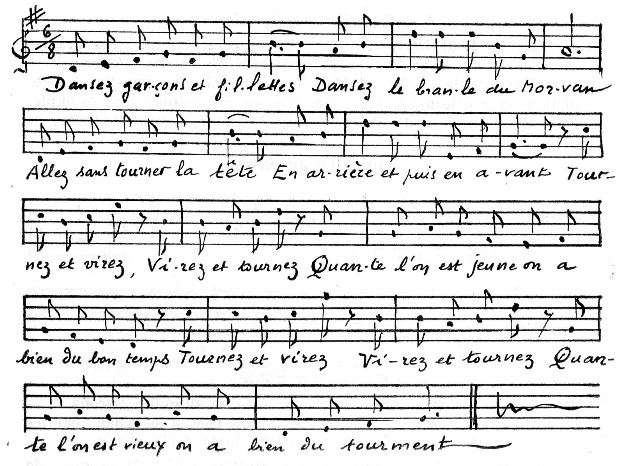 6/8
Dansez gar-çons et fil-lettes Dansez le bran-le du Mor-van
Allez sans tourner la tête En ar-rière et puis en a-vant Tour-
nez et virez, Vi-rez et tournez Quan-te l'on est jeune on a
bien du bon temps Tournez et virez Vi-rez et tournez Quan-
te l'on est vieux on a bien du tourment